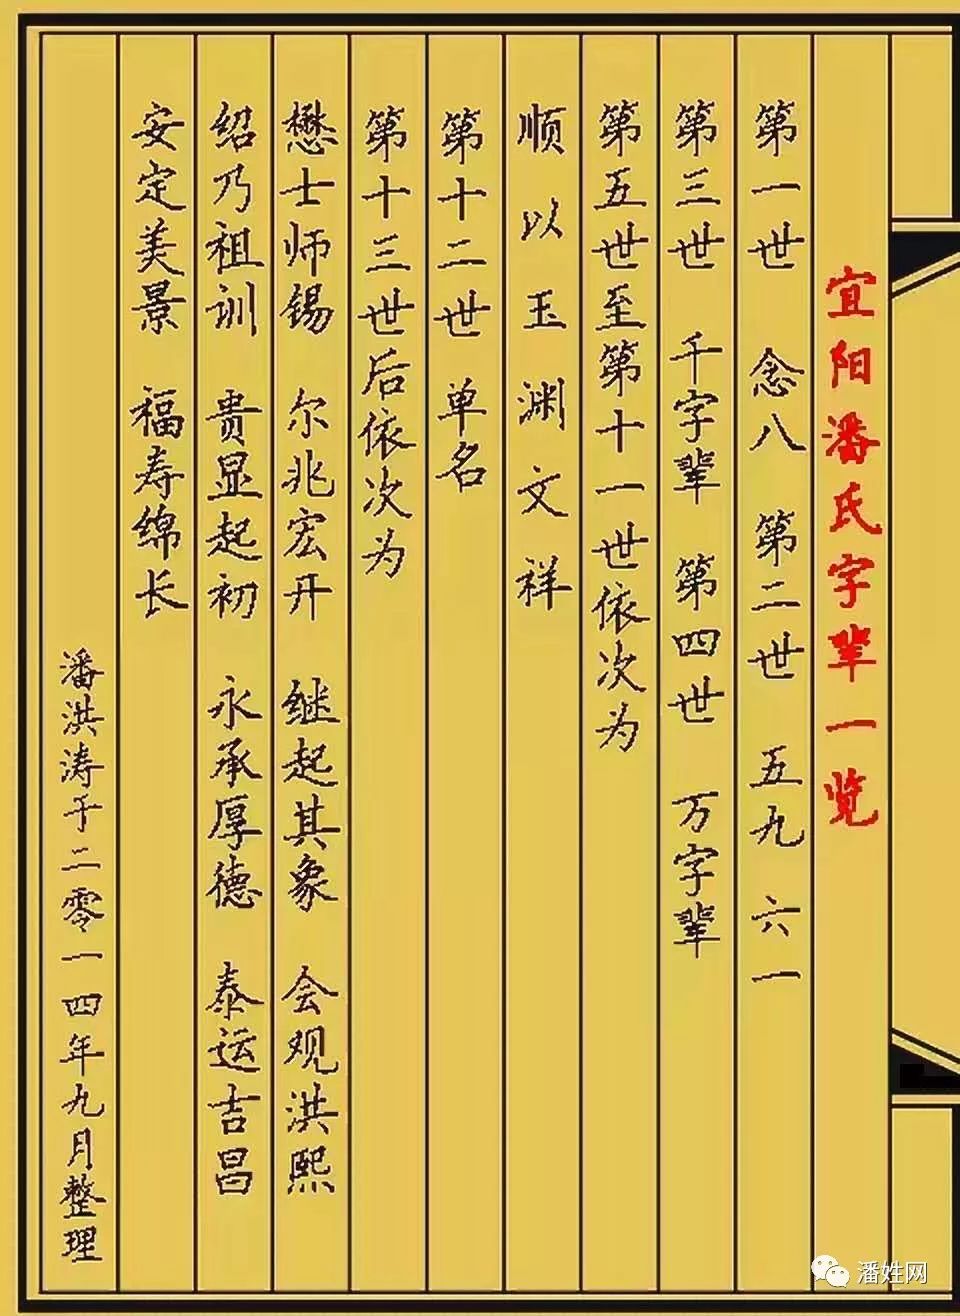 宜阳潘氏字辈一览
第一世 念八 第二世 五九 六一
第三世 千字辈 第四世 万字辈
第五世至第十一世依次为
顺 以 玉 渊 文 祥
第十二世 单名
第十三世后依次为
懋士师锡 尔兆宏开 继起其象 会观洪熙
绍乃祖训 贵显起初 永承厚德 泰运吉昌
安定美景 福寿绵长
潘洪涛于二零一四年九月整理
潘姓网